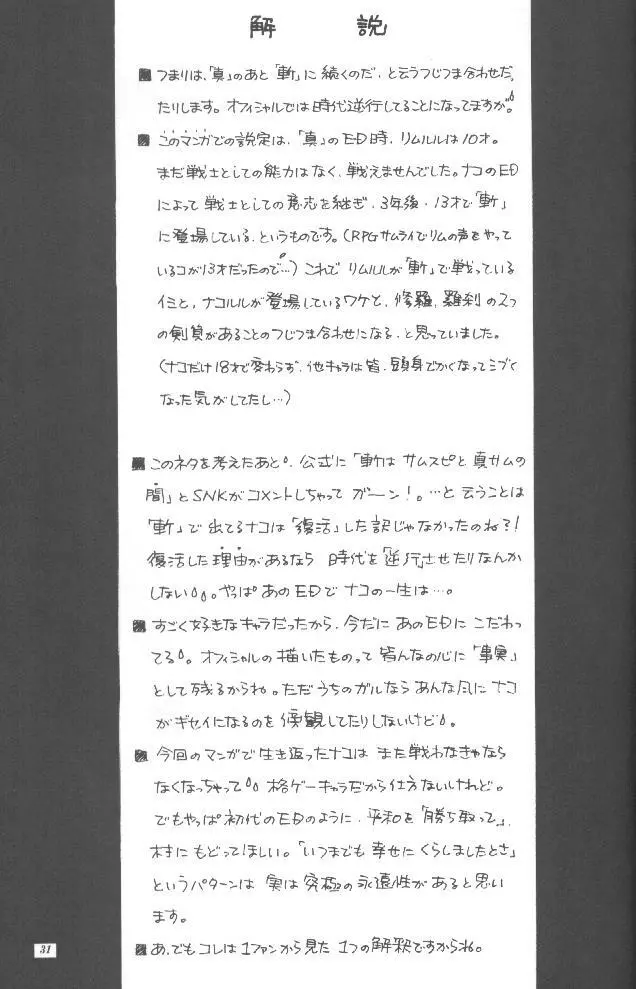 解　説
■つまりは、「真」のあと「斬」に続くのだ、と云うつじつま合わせだ
たりします。オフィシャルでは時代逆行してることになってますが。
■このマンガでの設定は、「真」のED時、リムルルは10才。
まだ戦士としての能力はなく、戦えませんでした。ナコのED
によって戦士としての意志を継ぎ、3年後・13才で「斬」
に登場している、というものです。(RPGサムライでリムの声をやって
いるコが13才だったので…)これで リムルルが「斬」で戦っている
イミと、ナコルルが登場しているワケと、修羅、羅刹の2つ
の剣質があることのつじつま合わせになる、と思っていました。
(ナコだけ18才で変わらず、他キャラは皆、頭身でかくなってシブく
なった気がしてたし…)
■このネタを考えたあと、公式に「斬は サムスピと真サムの
間」とSNKがコメントしちゃって ガーン!。…と云うことは
「斬」で出てるナコは「復活」した訳じゃなかったのね?!
復活した理由があるなら 時代を「逆行」させたりなんか
しない。やっぱあのEDでナコの一生は…。
■すごく好きなキャラだったから、今だに あのEDに こだわっ
てる。オフィシャルの描いたものって皆んなの心に「事実」
として残るからね。ただうちのガルなら あんな風に ナコ
がギセイになるのを 傍観してたりしないけど。
■今回のマンガで生き返ったナコは また戦わなきゃなら
なくなっちゃって 格ゲーキャラだから仕方ないけれど。
でもやっぱ初代のEDのように、平和を「勝ち取って」、
村にもどってほしい。「いつまでも 幸せに くらしましたとさ」
というパターンは 実は 究極の永遠性があると思い
ます。
■あ、でもコレは1ファンから見た 1つの解釈ですからね。
31